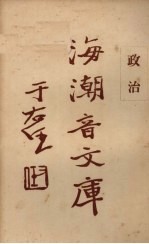 政治
海潮音文庫
于右任